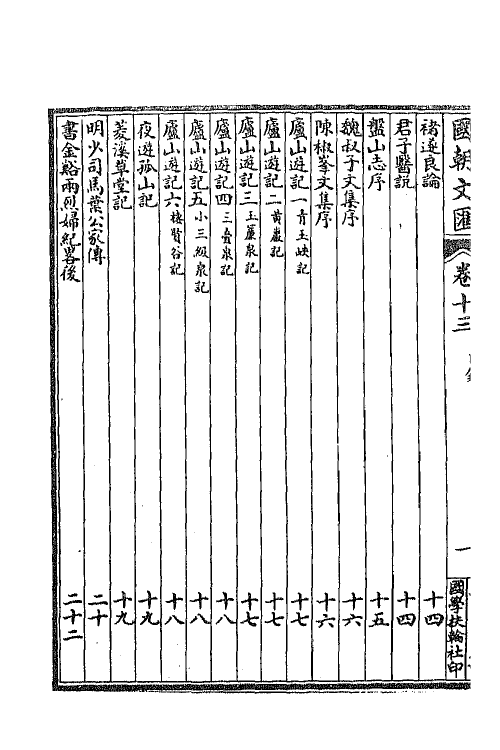 國朝文匯 卷十三 目錄 一 國學扶輪社印
褚遂良論 十四
君子醫說 十四
盤山志序 十五
魏叔子文集序 十六
陳椒峯文集序 十六
廬山遊記一 青玉峽記 十七
廬山遊記二 黃巖記 十七
廬山遊記三 玉簾泉記 十七
廬山遊記四 三疊泉記 十八
廬山遊記五 小三級泉記 十八
廬山遊記六 棲賢谷記 十八
夜遊孤山記 十九
菱溪草堂記 十九
明少司馬葉公家傳 二十
書金谿兩烈婦紀畧後 二十二